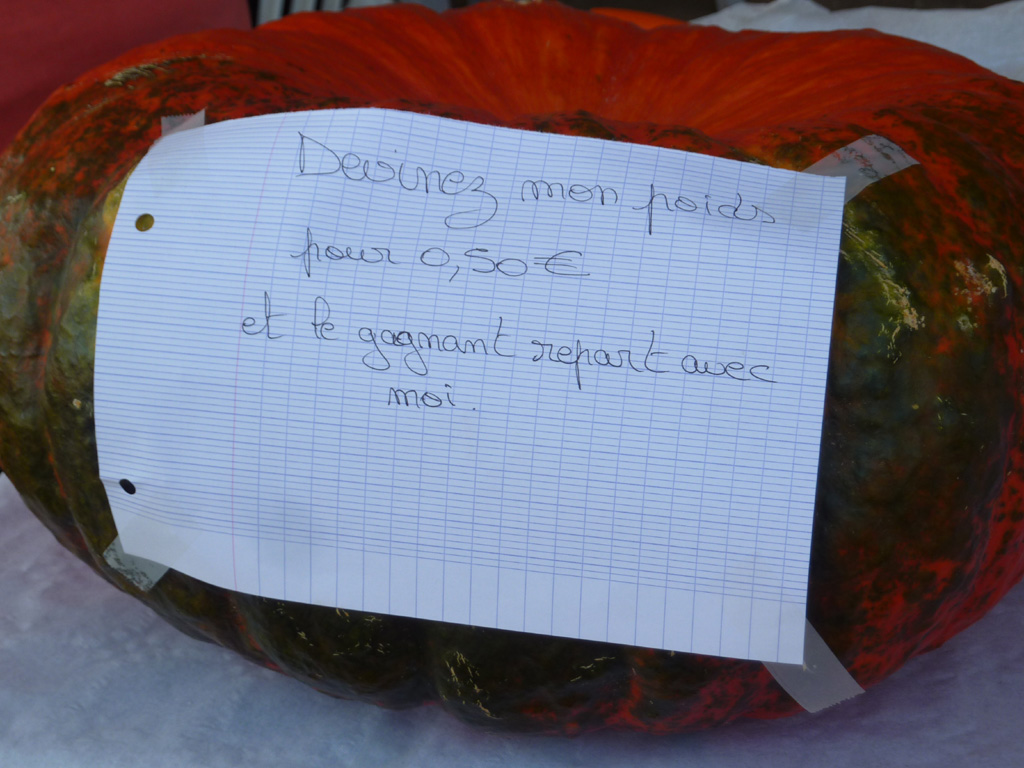 Devinez mon poids
pour 0,50 €
et le gagnant repart avec
moi.